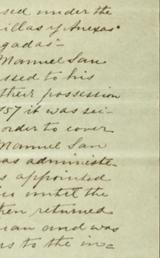 sed under the
illas y Anexas"
gadas"
Manuel San
ssed to his
ther possession
57 it was sei-
order to cover
Manuel San
as administe-
s appointed
until the
then returned
man and was
rs to the in=